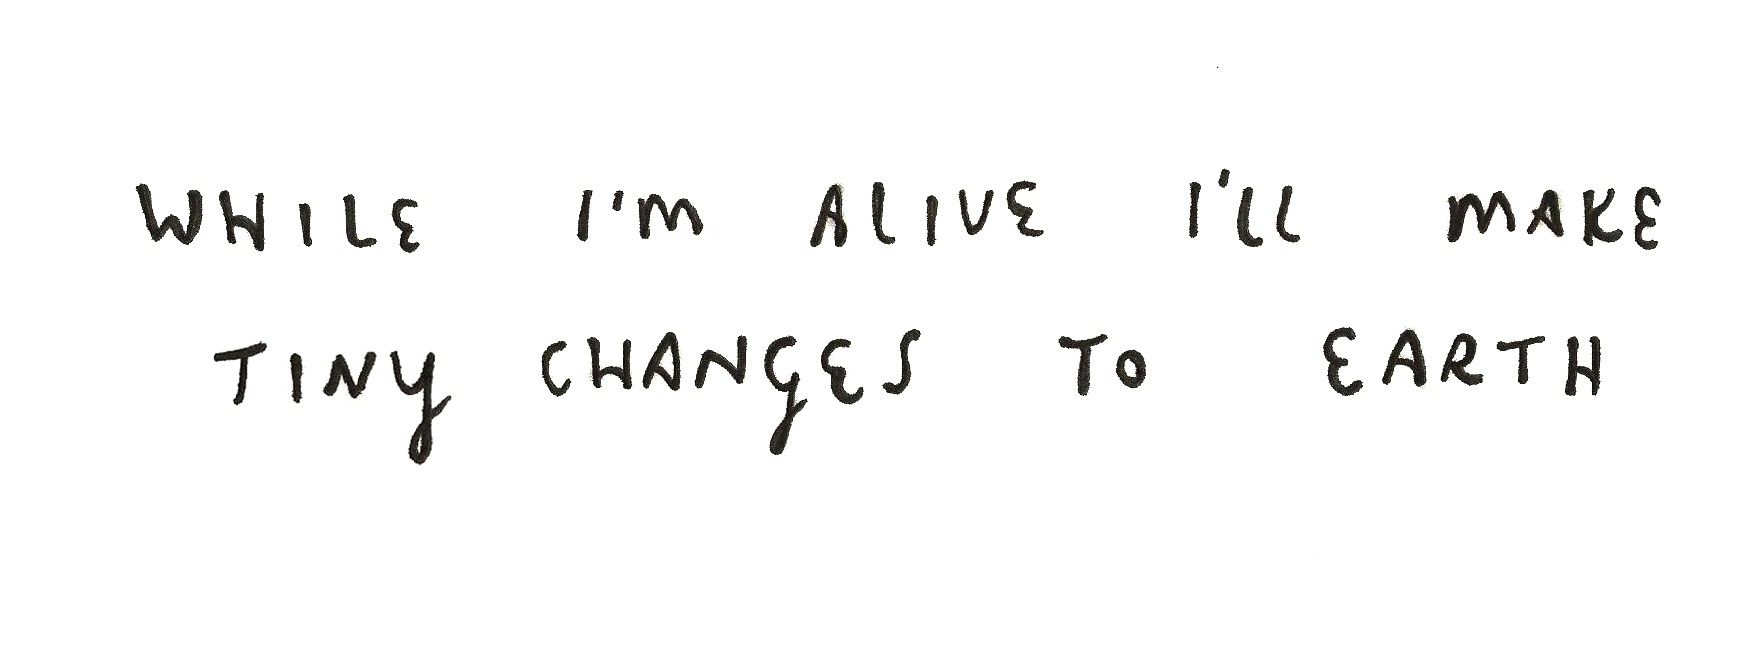 WHILE I'M ALIVE I'LL MAKE
TINY CHANGES TO EARTH